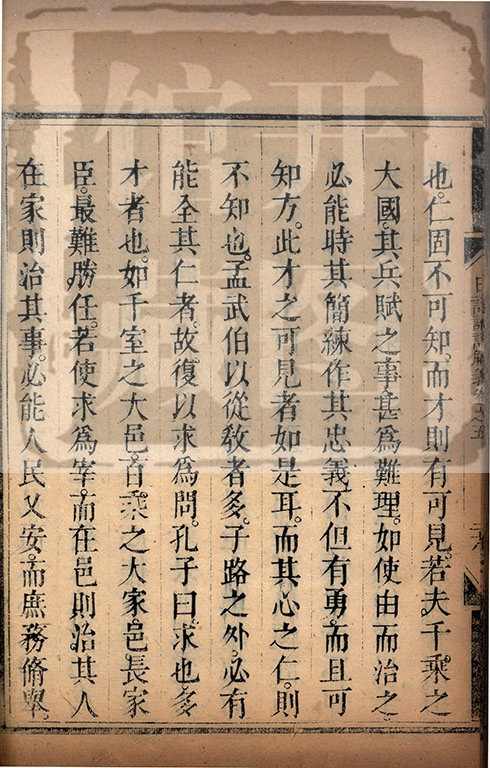 也。仁固不可知。而才則有可見。若夫千乘之
大國。其兵賦之事。甚爲難理。如使由而治之
必能時其簡練。作其忠義。不但有勇。而且可
知方。此才之可見者如是耳。而其心之仁。則
不知也。孟武伯以從敎者多。子路之外。必有
能全其仁者。故復以求爲問。孔子曰。求也多
才者也。如千室之大邑。百乘之大家。邑長家
臣。最難勝任。若使求爲宰。而在邑則治其人
在家則治其事。必能人民乂安。而庶務脩舉。